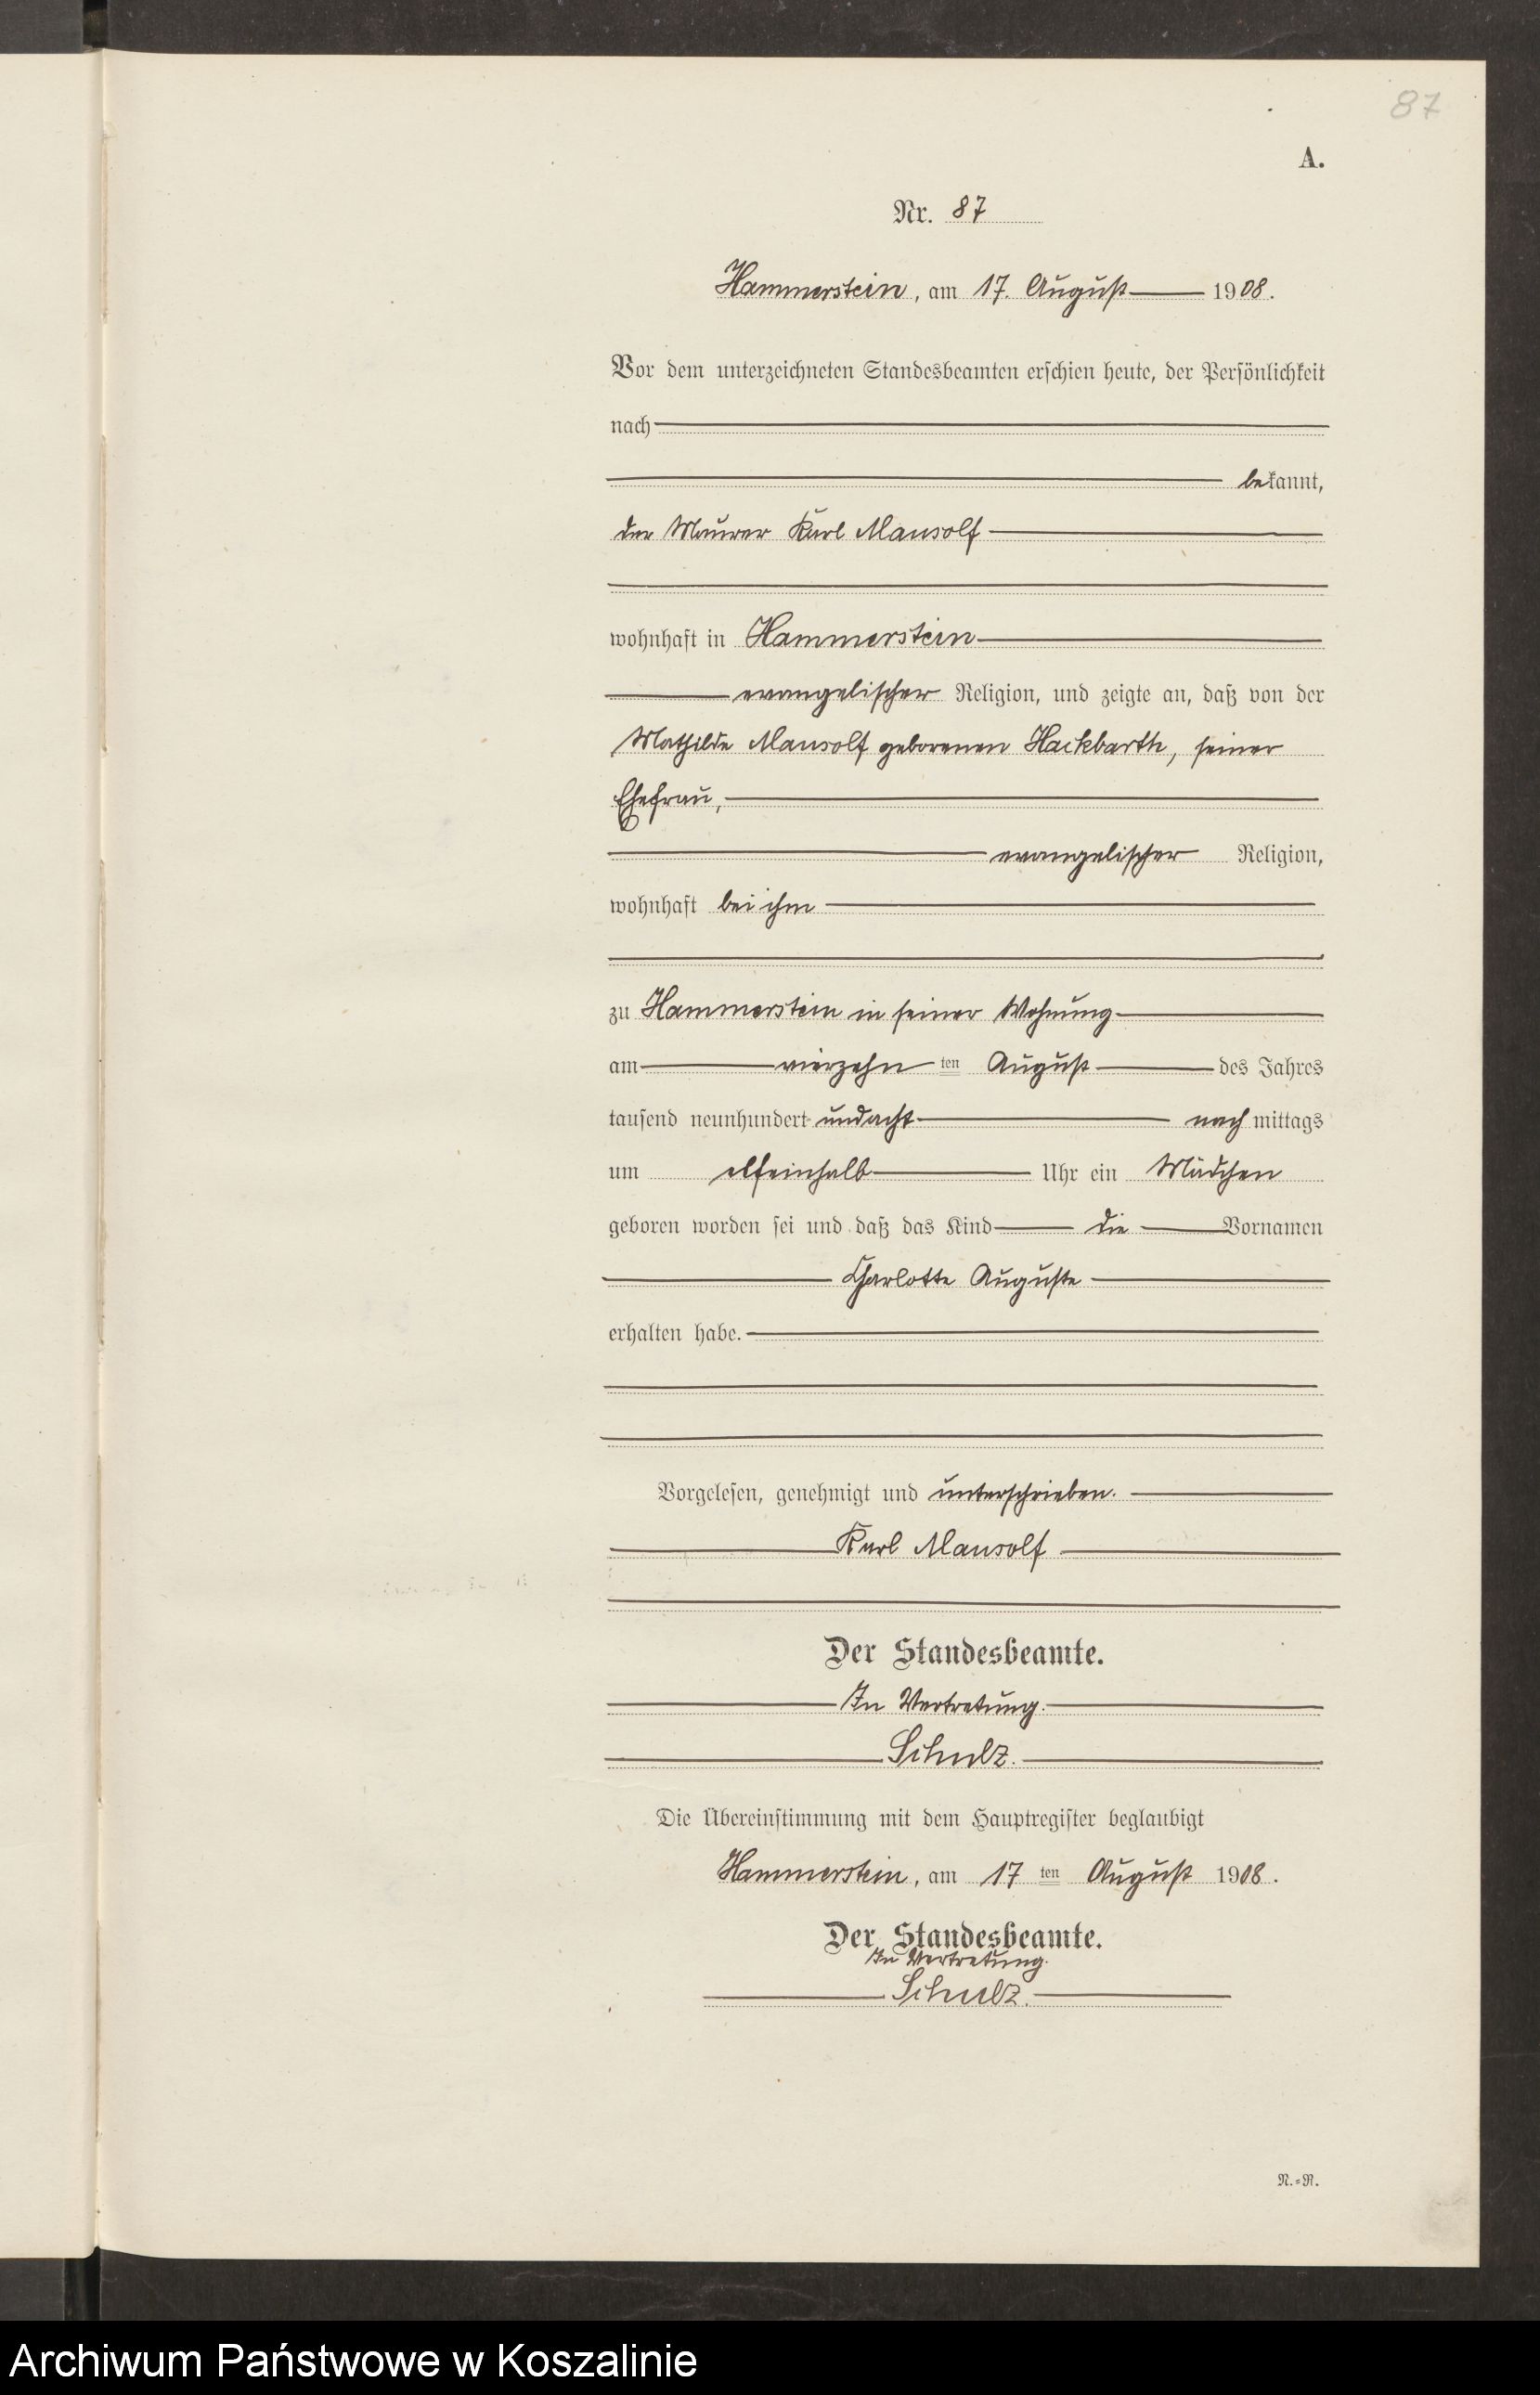 87
A.
Nr. 87
Hammerstein, am 17. August 1908.
Vor dem unterzeichneten Standesbeamten erschien heute, der Persönlichkeit
nach
bekannt,
der Maurer Karl Mansolf
wohnhaft in Hammerstein
evangelischer Religion, und zeigte an, daß von der
Mathilde Mansolf geborenen Hackbarth, seiner
Ehefrau,
evangelischer Religion,
wohnhaft bei ihm
zu Hammerstein in seiner Wohnung
am vierzehn ten August des Jahres
tausend neunhundert undacht nachmittags
um elfeinhalb Uhr ein Mädchen
geboren worden sei und daß das Kind die Vornamen
Charlotte Auguste
erhalten habe.
Vorgelesen, genehmigt und unterschrieben.
Karl Mansolf
Der Standesbeamte.
In Vertretung.
Schulz.
Die Übereinstimmung mit dem Hauptregister beglaubigt
Hammerstein, am 17 ten August 1908.
Der Standesbeamte.
In Vertretung.
Schulz.
N.=R.
Archiwum Państwowe w Koszalinie